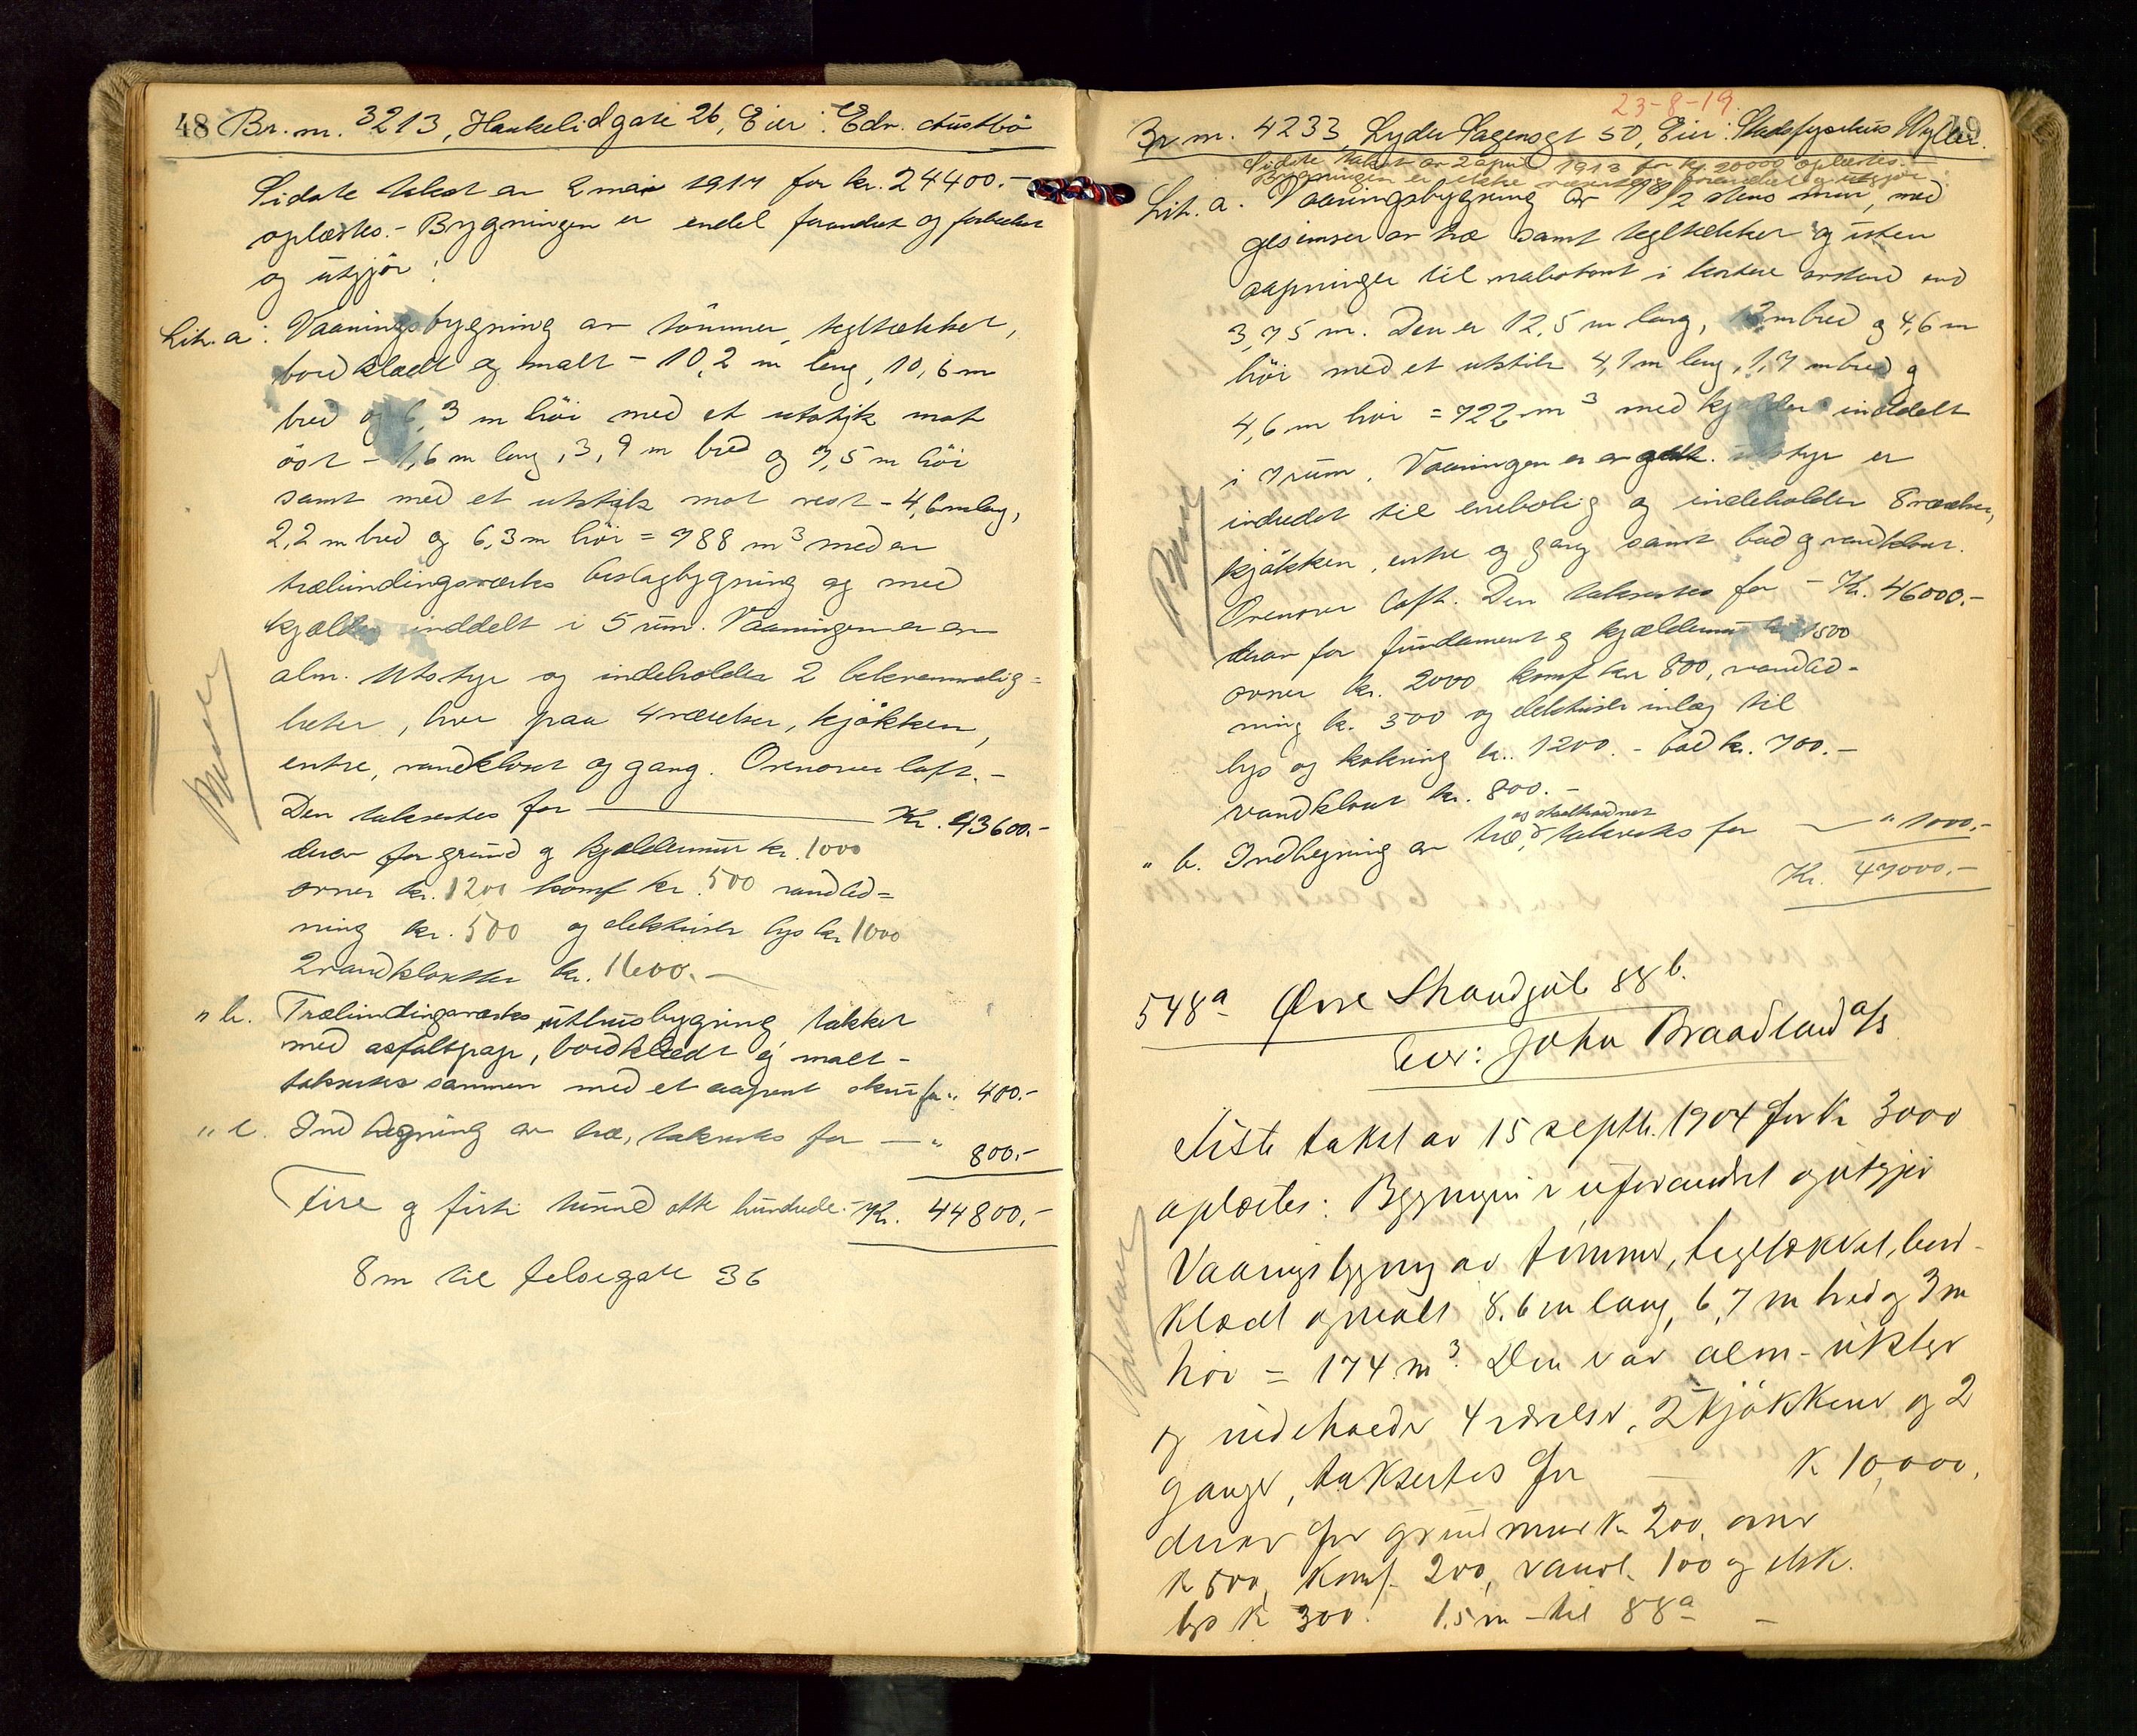 48 Br. nr. 3213, Haukelidgate 26, Eier: Edv. Austbö
Sidste takst av 2 mai 1917 for kr. 24400.-
oplæstes.- Bygningen er endel forandret og forbedret
og utgjör:
Lit. a: Vaaningsbygning av tömmer, tegltækket,
bordklædt og malt - 10,2 m lang, 10,6 m
bred og 6,3 m höi med et utstik mot
öst - 1,6 m lang, 3,9 m bred og 7,5 m höi
samt med et utstik mot vest - 4,6 m lang,
2,2 m bred og 6,3 m höi = 788 m³ med en
træbindingsverks bislagbygning og med
kjælder inddelt i 5 rum. Vaaningen er av
alm. utstyr og indeholder 2 bekvemmelig=
heter, hver paa 4 værelser, kjökken,
entre, vandkloset og gang. Ovenover loft.-
Den taksertes for Kr. 43600.-
derav for grund og kjældermur kr. 1000
ovner kr. 1200 komf kr. 500 vandled=
ning kr. 500 og elektrisk lys kr 1000
2 vandklosetter kr. 1600.-
" b. Træbindingsverks uthusbygning tækket
med asfaltpap, bordklædt og malt -
taksertes sammen med et aapent skur for " 400.-
" c. Indhegning av træ, taksertes for - " 800.-
Fire og firti tusind otte hundrede - Kr. 44800.-
8 m til Jelsegate 36
23-8-19.
49
Br. nr. 4233, Lyder Sagensgt 50, Eier: Stadsfysikus Wyller.
Sidste takst av 2 april 1913 for kr. 20000 oplæstes.
Bygningen er ikke væsentlig forandret og utgjör:
Lit. a. Vaaningsbygning av 1 1/2 stens mur, med
gesimser av træ samt tegltækket og uten
aapninger til nabotomt i kortere avstand end
3,75 m. Den er 12,5 m lang, 12 m bred og 4,6 m
höi med et utstik 4,1 m lang, 1,7 m bred og
4,6 m höi = 722 m³ med kjælder inddelt
i 7 rum. Vaaningen er av godt utstyr er
indredet til enebolig og indeholder 8 værelser,
kjökken, entre og gang samt bad og vandkloset.
Ovenover loft. Den taksertes for - Kr. 46000.-
derav for fundament og kjældermur kr 1500
ovner kr. 2000 komf kr 800, vandled-
ning kr. 500 og elektrisk inlæg til
lys og kokning kr. 1200.- bad kr. 700.-
vandkloset kr. 800.-
og staaltraadnet
" b. Indhegning av træ, taksertes for - " 1000.-
Kr. 47000.-
548a Øvre Strandgate 88b.
Eier: John Braadland a/s
Siste takst av 15 septbr. 1904 for Kr 3000
oplæstes: Bygningen er uforandret og utgjör
Vaaningsbygning av tömmer, tegltækket, bord-
klædt og malt 8.6 m lang, 6,7 m bred og 3 m
höi = 174 m³. Den er av alm. utstyr
og indeholder 4 værelser, 2 kjökkener og 2
ganger, taksertes for Kr 10,000.
derav for grundmur Kr 200, ovner
Kr 500, Komf. 200, vandl. 100 og elek.
lys Kr 300. 1.5 m til 88a -